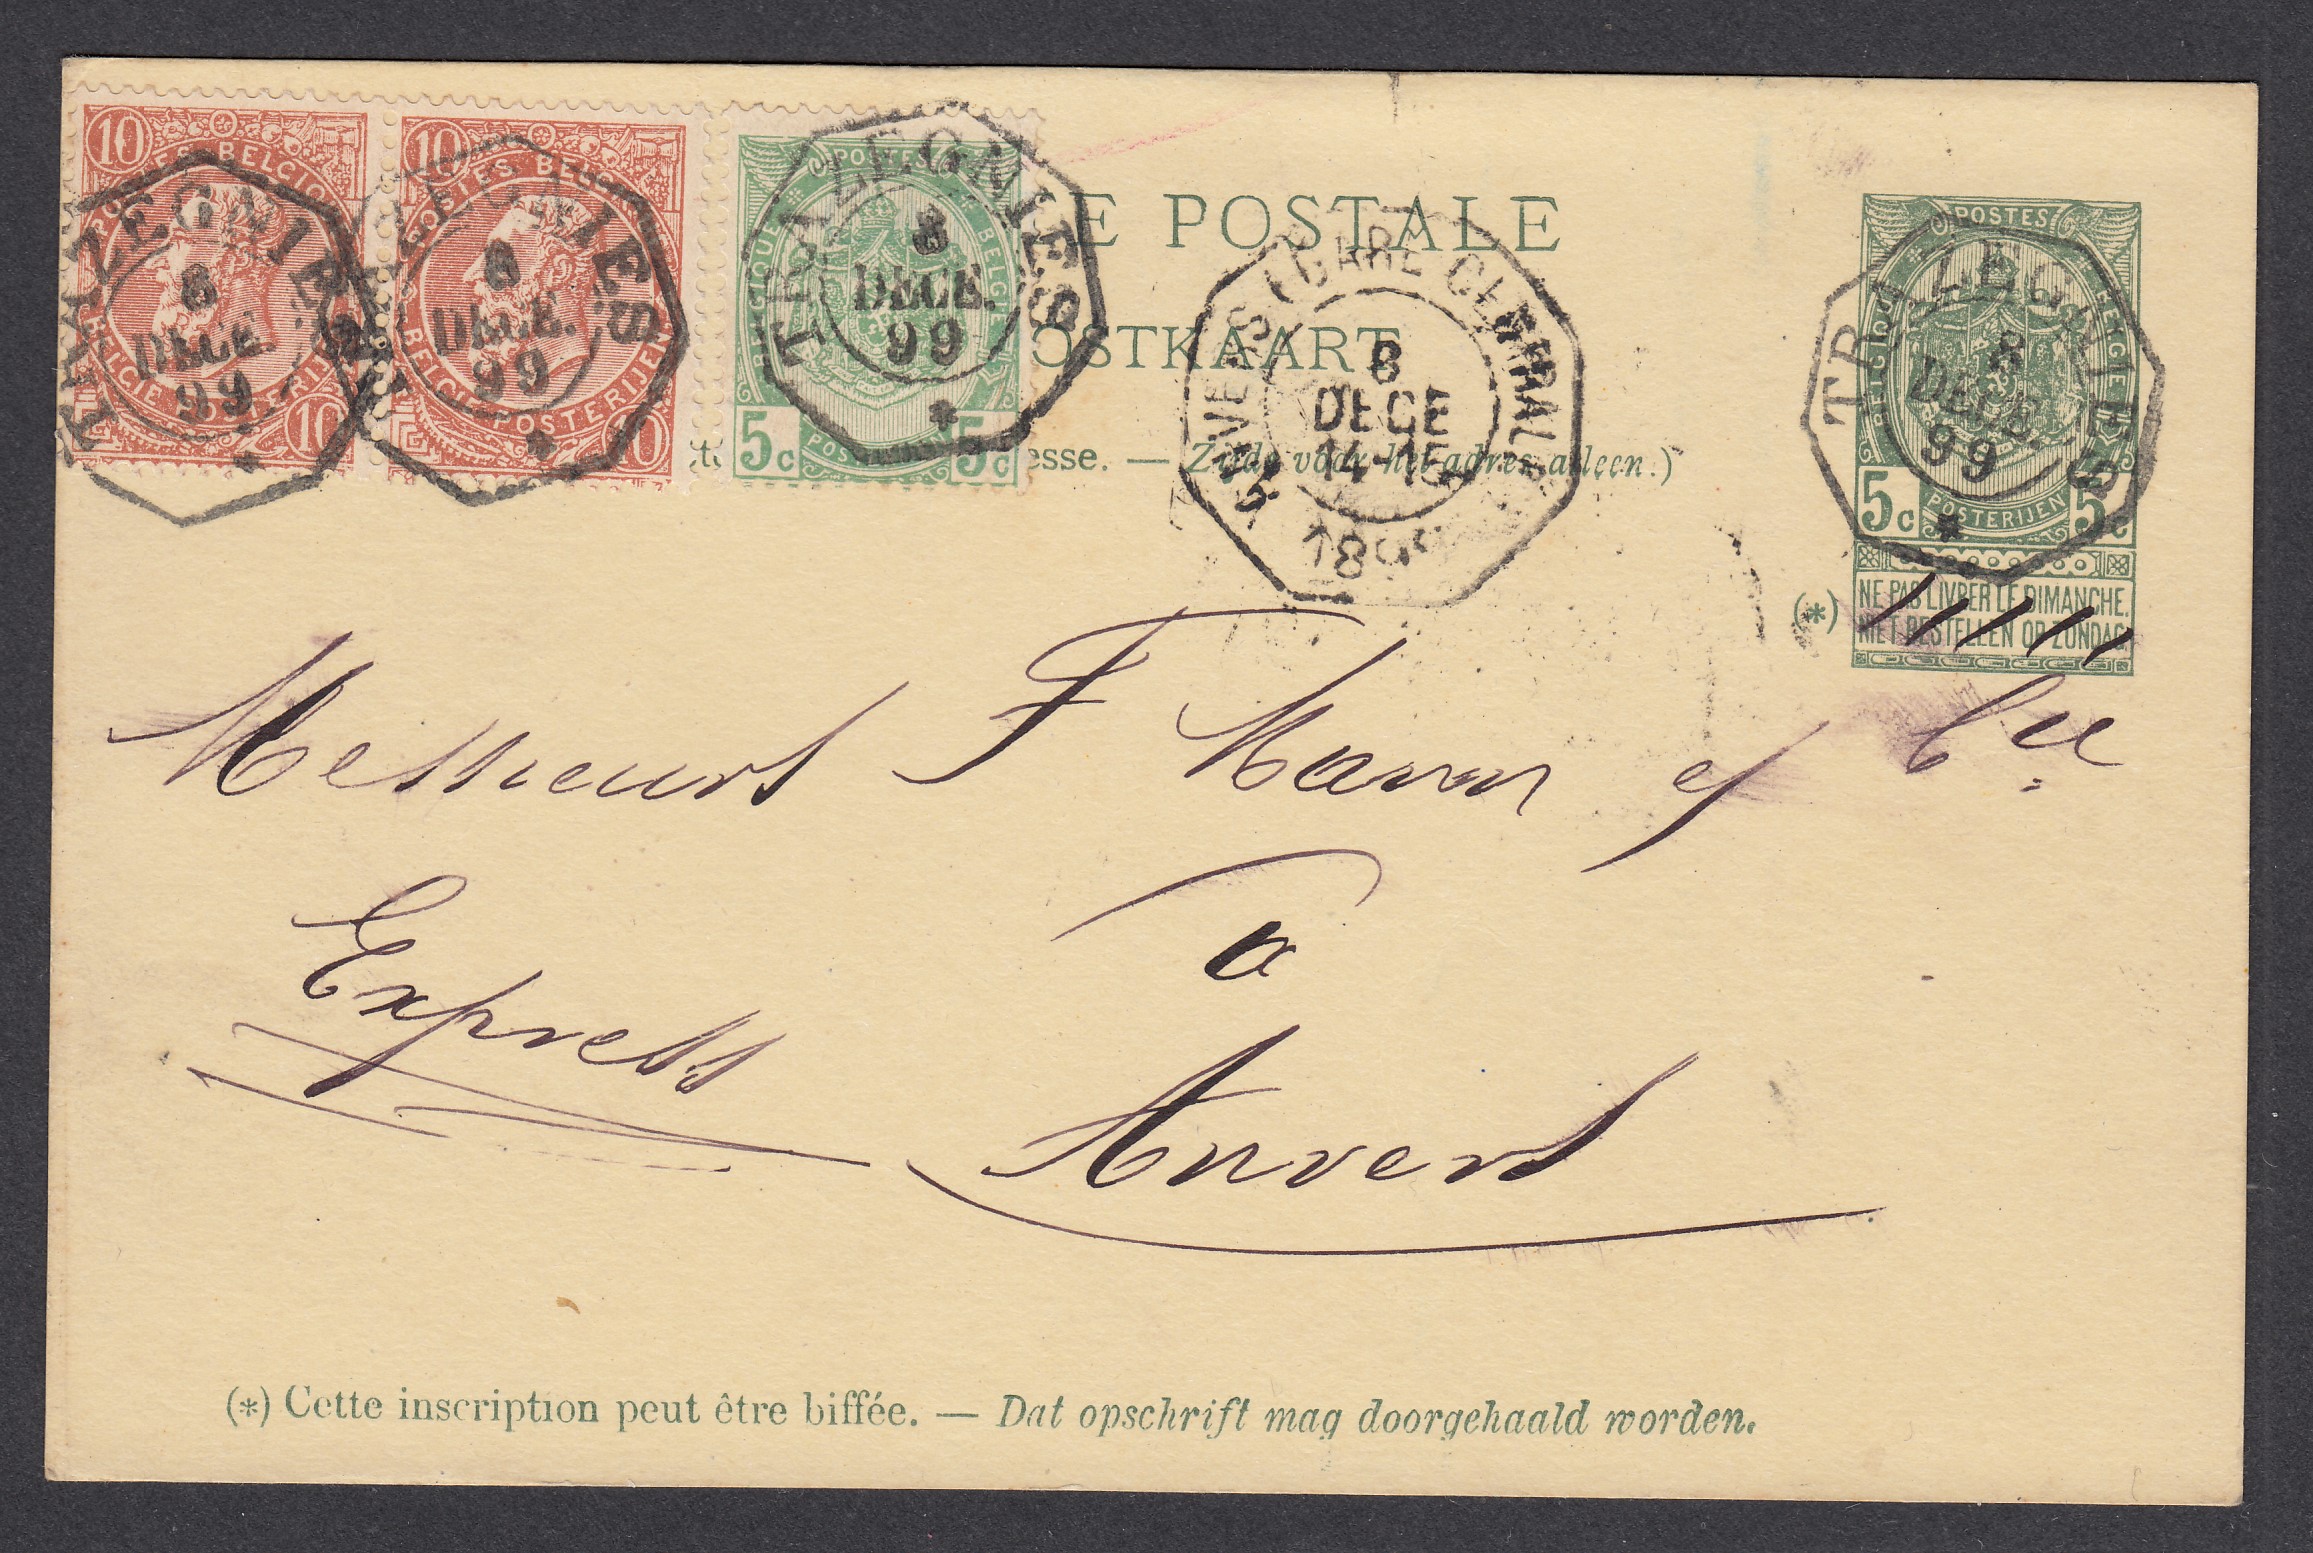 10 10
POSTES BELGIQUE
BELGIE POSTERIJEN
10
TRAZEGNIES
8
DECE.
99
*
10
POSTES BELG
BELGIE POSTERIJEN
10
ZEGNIES
8
DECE.
99
*
POSTES
BELGIE
5c POSTERIJEN 5c
TRAZEGNIES
8
DECE.
99
*
E POSTALE
OSTKAART
esse. — Zijde voor het adres alleen.)
ANVERS (GARE CENTRALE)
8
DECE
14-15
1899
POSTES
BELGIQUE BELGIE
5c POSTERIJEN 5c
TRAZEGNIES
8
DECE.
99
*
(*) NE PAS LIVRER LE DIMANCHE.
NIET BESTELLEN OP ZONDAG.
Messieurs F
& Cie
Express
a
Anvers
(*) Cette inscription peut être biffée. — Dat opschrift mag doorgehaald worden.